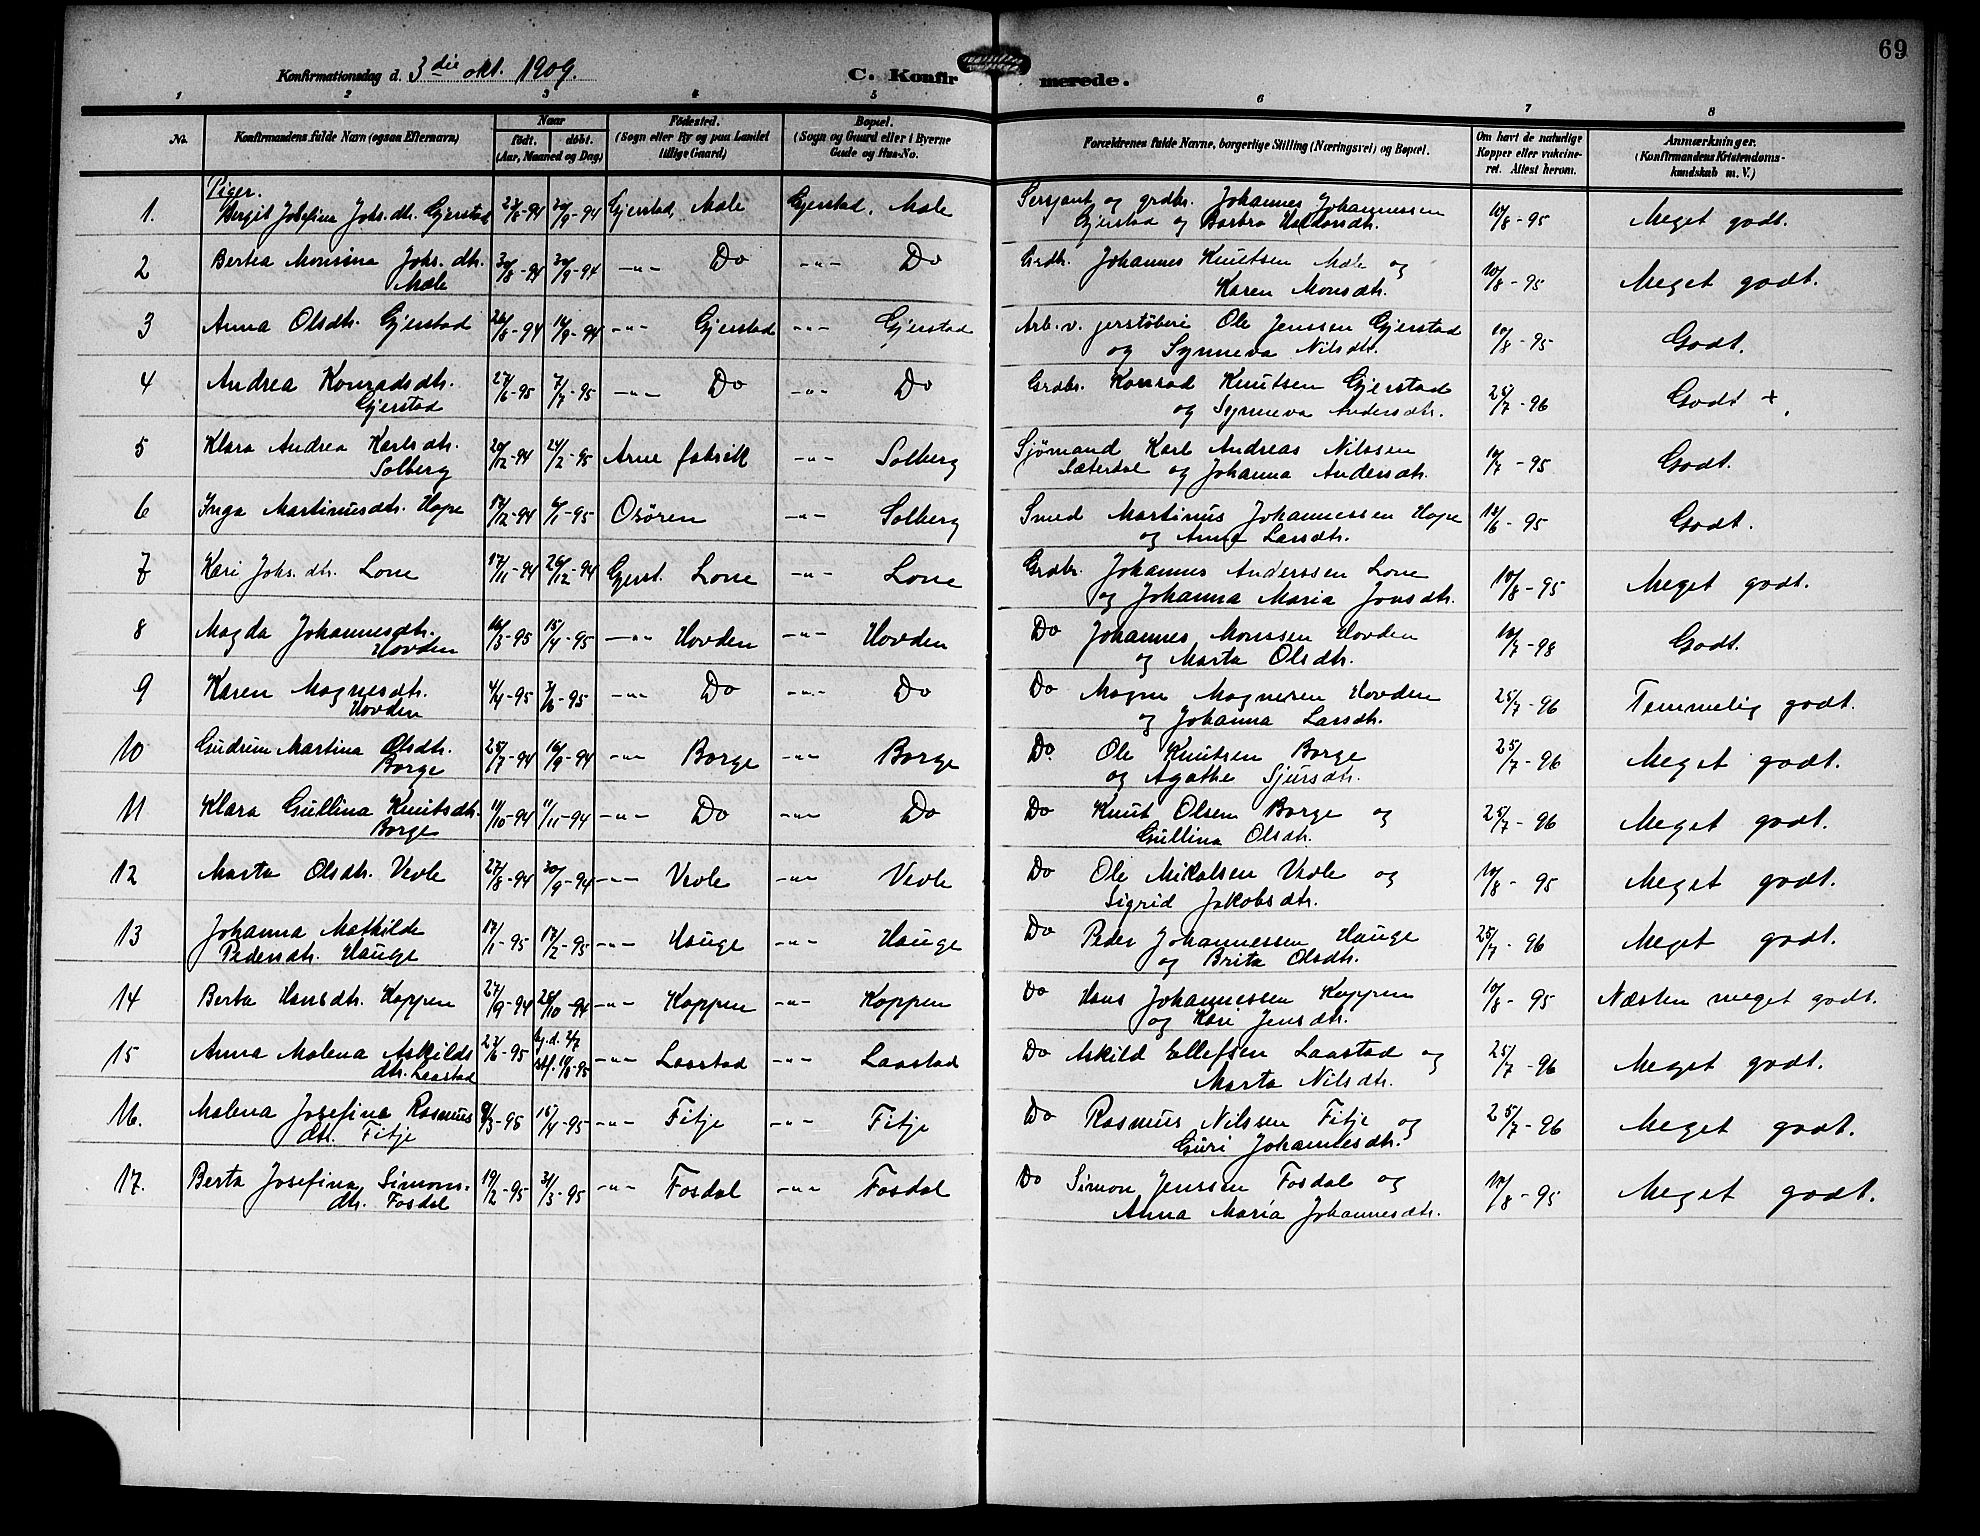 69
Konfirmationsdag d. 3die okt. 1909.
C. Konfirmerede.
1 2 3 4 5 6 7 8
No.
Konfirmandens fulde Navn (ogsaa Efternavn)
Naar
født. døbt.
(Aar, Maaned og Dag)
Fødested.
(Sogn eller By og paa Landet
tillige Gaard)
Bopæl.
(Sogn og Gaard eller i Byerne
Gade og Hus-No.
Forældrenes fulde Navne, borgerlige Stilling (Næringsvei) og Bopæl.
Om havt de naturlige
Kopper eller vakcine-
ret. Attest herom.
Anmærkninger.
(Konfirmandens Kristendoms-
kundskab m. V.)
Piger.
1. Bergit Josefina Johs. dtr. Gjerstad 23/6-94 30/9-94 Gjerstad, Mæle Gjerstad, Mæle Sersjant og grdbr. Johannes Johannessen 10/8-95 Meget godt.
Gjerstad og Barbra Haldorsdtr.
2 Bertha Monsina Johs. dtr. 30/8-94 30/9-94 -"- Do -"- Do Grdb. Johannes Knutsen Mæle og 10/8-95 Meget godt.
Mæle Karen Monsdtr.
3 Anna Olsdtr. Gjerstad 26/8-94 16/9-94 -"- Gjerstad -"- Gjerstad Arb. v. jerstøberi Ole Jenssen Gjerstad 10/8-95 Godt.
og Synneva Nilsdtr.
4 Andrea Konradsdtr. 27/6-95 7/7-95 -"- Do -"- Do Grdbr. Konrad Knutsen Gjerstad 25/7-96 Godt +
Gjerstad og Synneva Andersdtr.
5 Klara Andrea Karlsdtr. 20/12-94 24/2-95 Arne fabrik -"- Solberg Sjømand Karl Andreas Nilssen 10/7-95 Godt.
Solberg Sæterdal og Johanna Andersdtr.
6 Inga Martinusdtr. Hope 17/12-94 6/1-95 Osøren -"- Solberg Smed Martinus Johannessen Hope 12/6-95 Godt.
og Anna Larsdtr.
7 Kari Johs. dtr. Lone 17/11-94 26/12-94 Gjerst. Lone -"- Lone Grdbr. Johannes Anderssen Lone 10/8-95 Meget godt.
og Johanna Maria Jonsdtr.
8 Magda Johannesdtr. 16/3-95 15/4-95 -"- Hovden -"- Hovden Do Johannes Monssen Hovden 10/7-98 Godt.
Hovden og Marta Olsdtr.
9 Karen Magnesdtr. 4/4-95 3/6-95 -"- Do -"- Do Do Magne Magnesen Hovden 25/7-96 Temmelig godt.
Hovden og Johanna Larsdtr.
10 Gudrun Martina Olsdtr. 25/7-94 16/9-94 -"- Borge -"- Borge Do Ole Knutsen Borge 25/7-96 Meget godt.
Borge og Agathe Sjursdtr.
11 Klara Gullina Knutsdtr. 11/10-94 11/11-94 -"- Do -"- Do Do Knut Olsen Borge og 25/7-96 Meget godt.
Borge Gullina Olsdtr.
12 Marta Olsdtr. Vevle 27/8-94 30/9-94 -"- Vevle -"- Vevle Do Ole Mikalsen Vevle og 10/8-95 Meget godt.
Sigrid Jakobsdtr.
13 Johanna Mathilde 17/1-95 17/2-95 -"- Hauge -"- Hauge Do Peder Johannessen Hauge 25/7-96 Meget godt.
Pedersdtr. Hauge og Brita Olsdtr.
14 Berta Hansdtr. Koppen 27/9-94 28/10-94 -"- Koppen -"- Koppen Do Hans Johannessen Koppen 10/8-95 Næsten meget godt.
og Kari Jensdtr.
15 Anna Malena Askilds 23/6-95 hj.d. 2/7 -"- Laastad -"- Laastad Do Askild Ellefsen Laastad og 25/7-96 Meget godt.
dtr. Laastad Marta Nilsdtr.
16. Malena Josefina Rasmus 9/3-95 15/4-95 -"- Fitje -"- Fitje Do Rasmus Nilssen Fitje og 25/7-96 Meget godt.
dtr. Fitje Guri Johannesdtr.
17. Berta Josefina Simons- 19/2-95 31/3-95 -"- Fosdal -"- Fosdal Do Simon Jenssen Fosdal og 10/8-95 Meget godt.
dtr. Fosdal Anna Maria Johannesdtr.